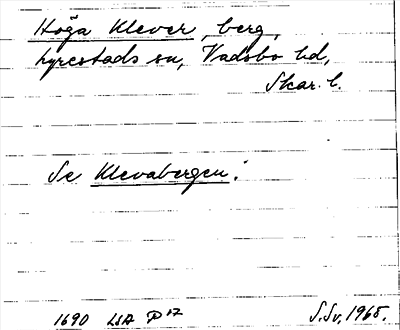 Höga Klever, berg,
Lyrestads sn, Vadsbo hd,
Skar. l.
Se Klevabergen.
1690 LSA P 17
S.Sv, 1965.